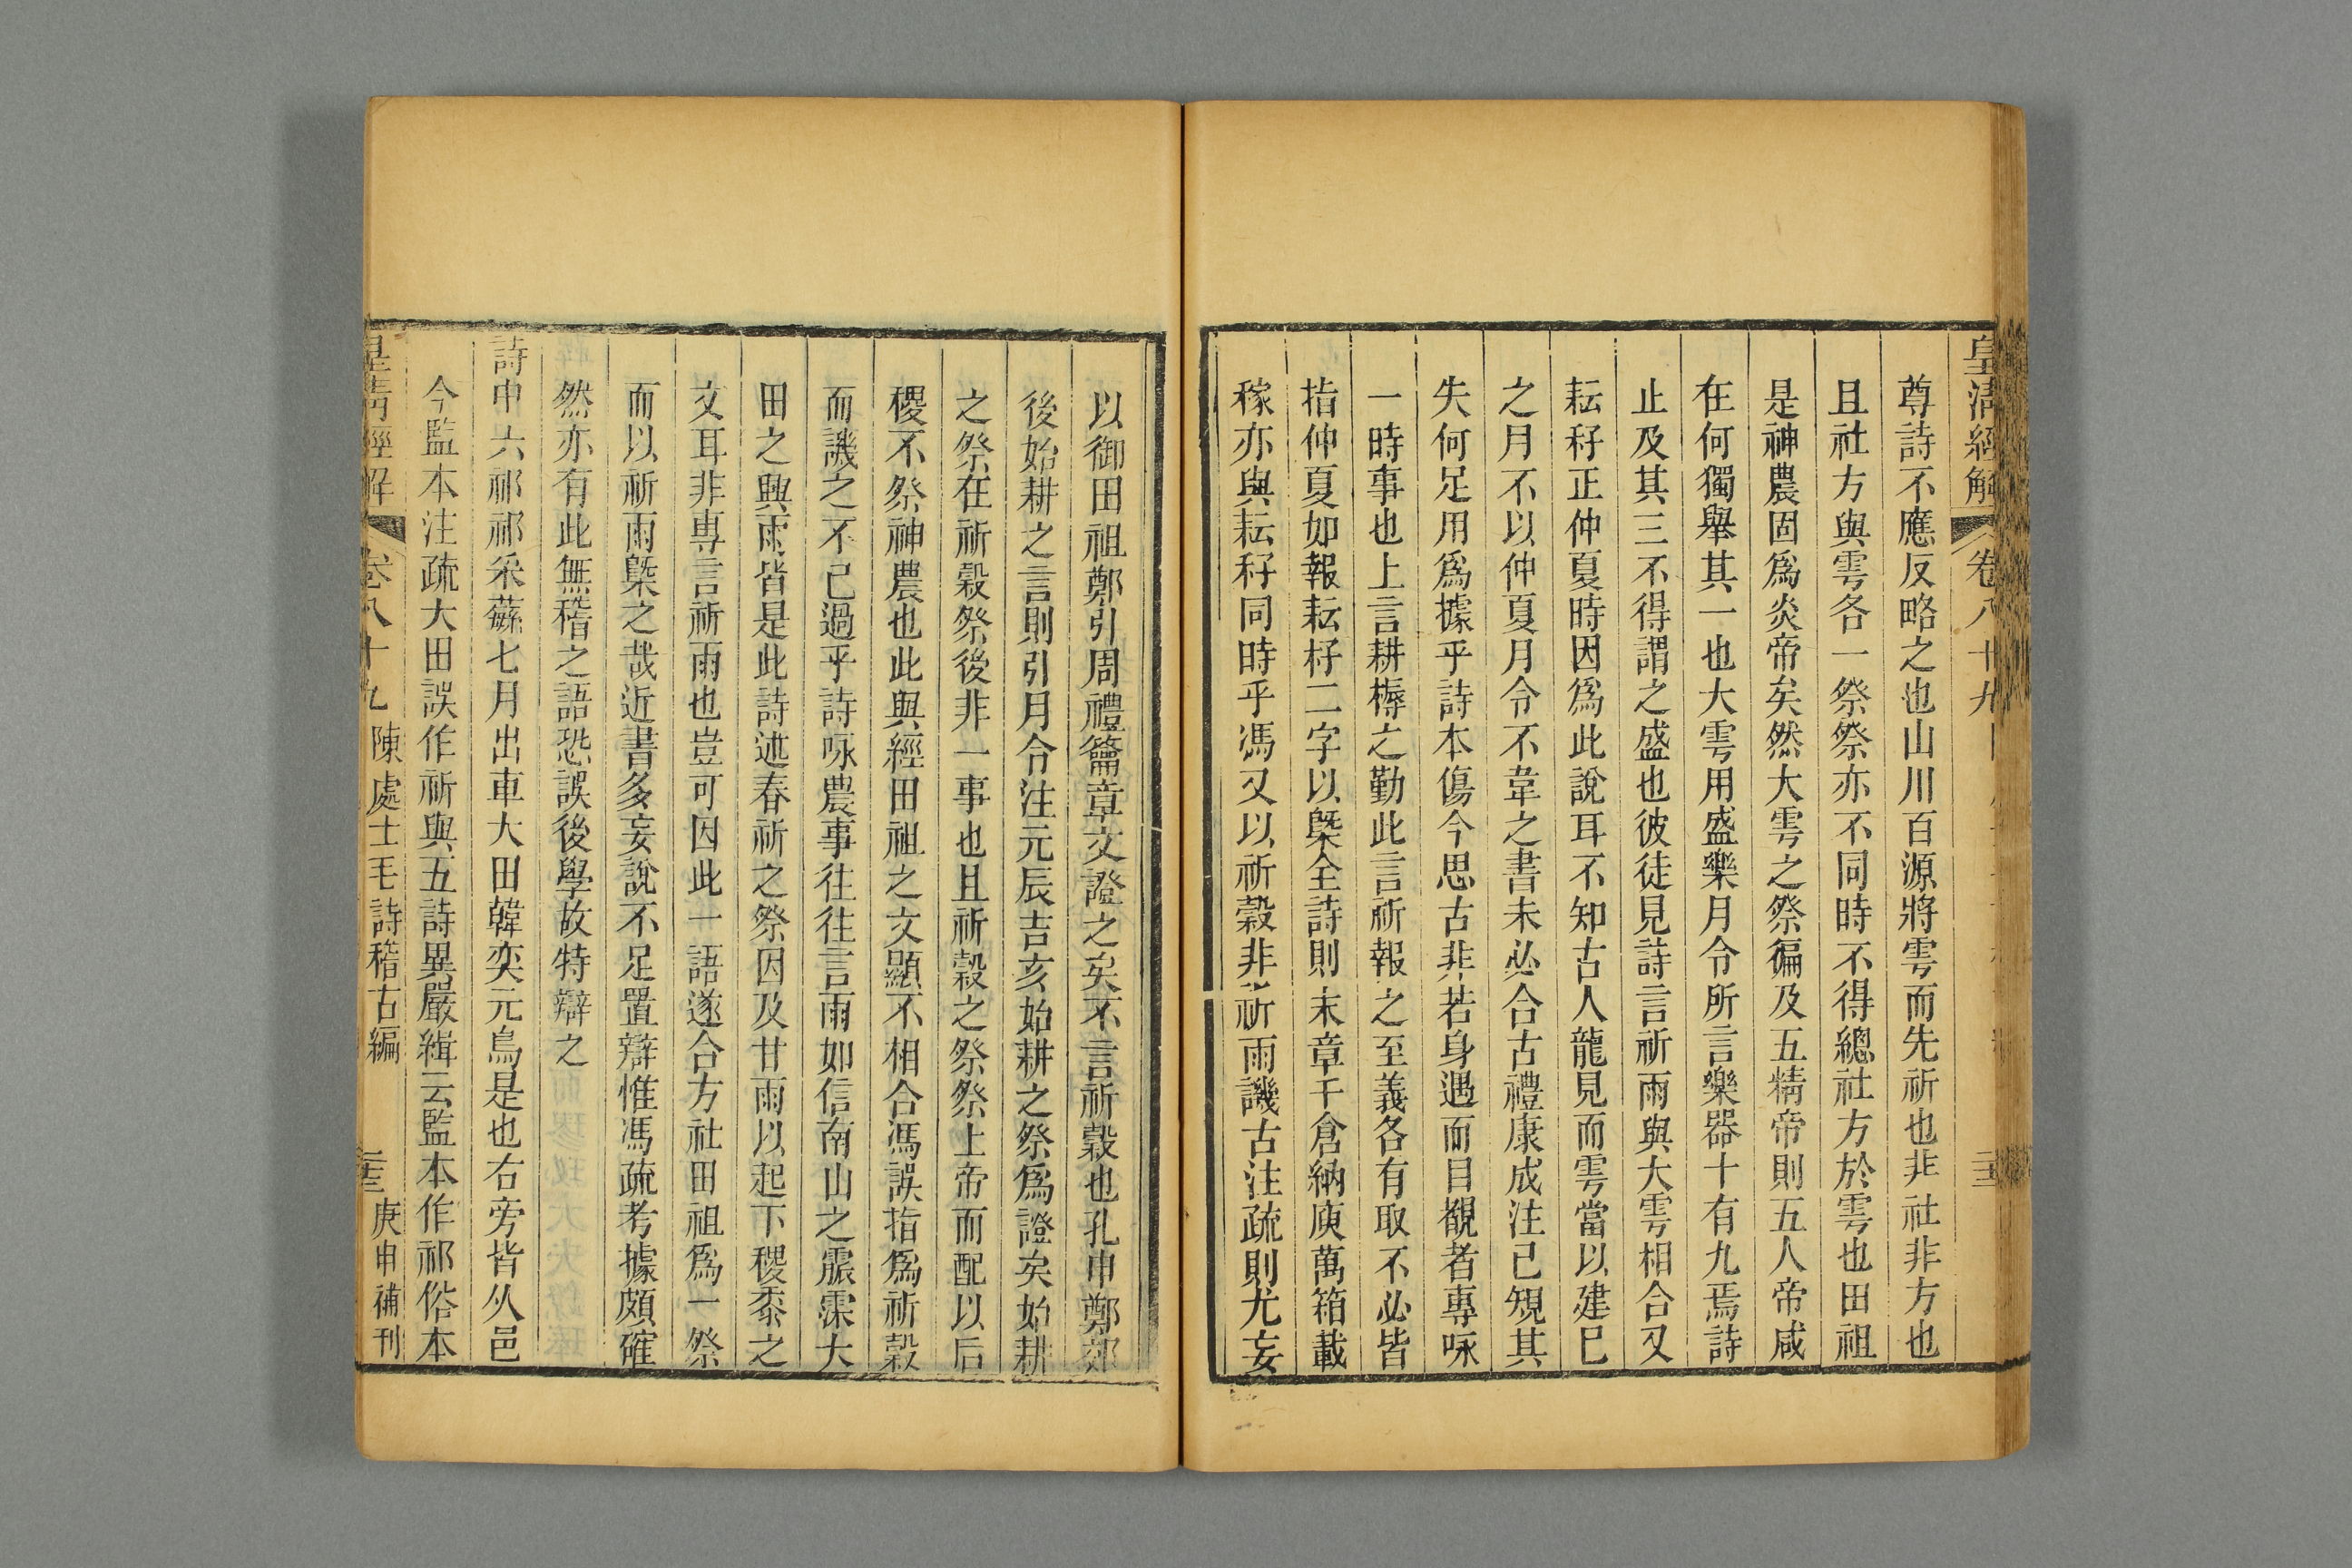 皇清經解 卷八十九
尊詩不應反略之也山川百源將雩而先祈也非社非方也
且社方與雩各一祭祭亦不同時不得總社方於雩也田祖
是神農固爲炎帝矣然大雩之祭徧及五精帝則五人帝咸
在何獨舉其一也大雩用盛樂月令所言樂器十有九焉詩
止及其三不得謂之盛也彼徒見詩言祈雨與大雩相合又
耘耔正仲夏時因爲此說耳不知古人龍見而雩當以建巳
之月不以仲夏月令不韋之書未必合古禮康成注已規其
失何足用爲據乎詩本傷今思古非若身遇而目覩者專咏
一時事也上言耕耨之勤此言祈報之至義各有取不必皆
指仲夏如報耘耔二字以槩全詩則末章千倉納庾萬箱載
稼亦與耘耔同時乎馮又以祈穀非祈雨譏古注疏則尤妄
以御田祖鄭引周禮籥章文證之矣不言祈穀也孔申鄭郊
後始耕之言則引月令注元辰吉亥始耕之祭爲證矣始耕
之祭在祈穀祭後非一事也且祈穀之祭祭上帝而配以后
稷不祭神農也此與經田祖之文顯不相合馮誤指爲祈穀
而譏之不已過乎詩咏農事往往言雨如信南山之霢霂大
田之興雨皆是此詩述春祈之祭因及甘雨以起下稷黍之
文耳非專言祈雨也豈可因此一語遂合方社田祖爲一祭
而以祈雨槩之哉近書多妄說不足置辯惟馮疏考據頗確
然亦有此無稽之語恐誤後學故特辯之
詩中六祁祁采蘩七月出車大田韓奕元鳥是也右旁皆从邑
今監本注疏大田誤作祈與五詩異嚴緝云監本作祁俗本
皇清經解 卷八十九 陳處士毛詩稽古編 庚申補刊